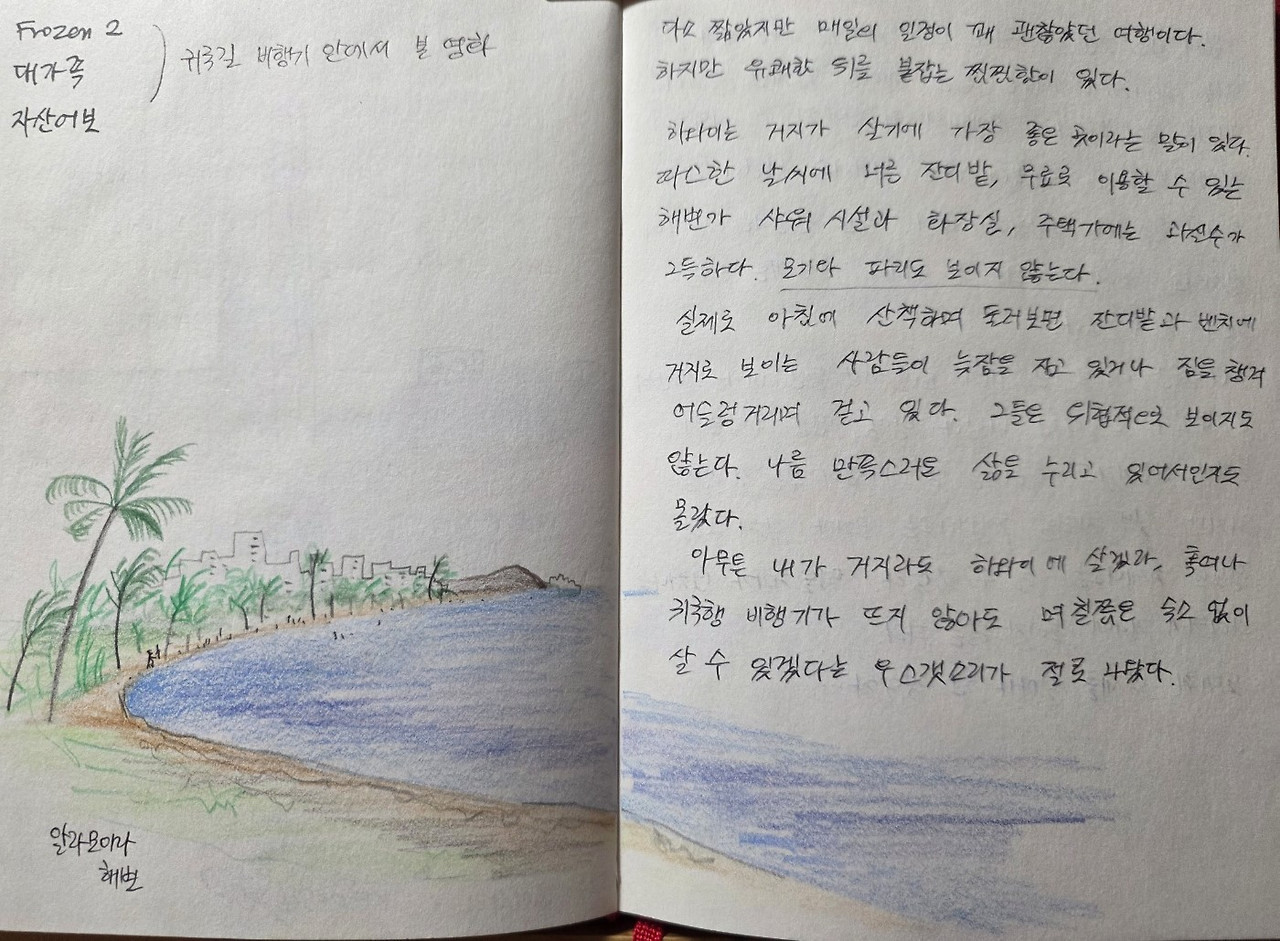 Frozen 2
대가족
자산어보
귀국길 비행기 안에서 본 영화
알라모아나
해변
다소 짧았지만 매일의 일정이 꽤 괜찮았던 여행이다.
하지만 유쾌한 뒤를 붙잡는 찝찝함이 있다.
하와이는 거지가 살기에 가장 좋은 곳이라는 말이 있다.
따스한 날씨에 너른 잔디밭, 무료로 이용할 수 있는
해변가 샤워 시설과 화장실, 주택가에는 과실수가
그득하다. 모기와 파리도 보이지 않는다.
실제로 아침에 산책하며 둘러보면 잔디밭과 벤치에
거지로 보이는 사람들이 늦잠을 자고 있거나 짐을 챙겨
어슬렁거리며 걷고 있다. 그들은 위협적으로 보이지도
않는다. 나름 만족스러운 삶을 누리고 있어서인지도
몰랐다.
아무튼 내가 거지라도 하와이에 살겠라, 혹여나
귀국행 비행기가 뜨지 않아도 며칠쯤은 숙소 없이
살 수 있겠다는 우스갯소리가 절로 나왔다.